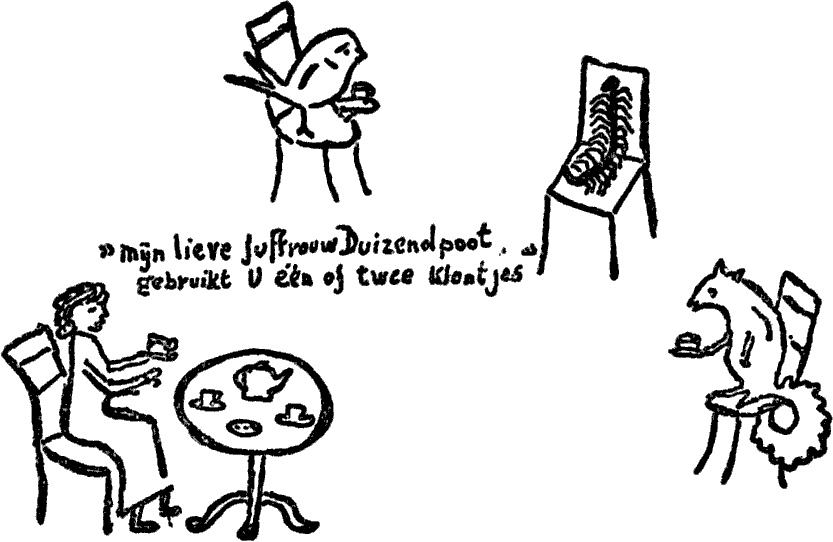 » mijn lieve Juffrouw Duizendpoot
gebruikt U één of twee klontjes